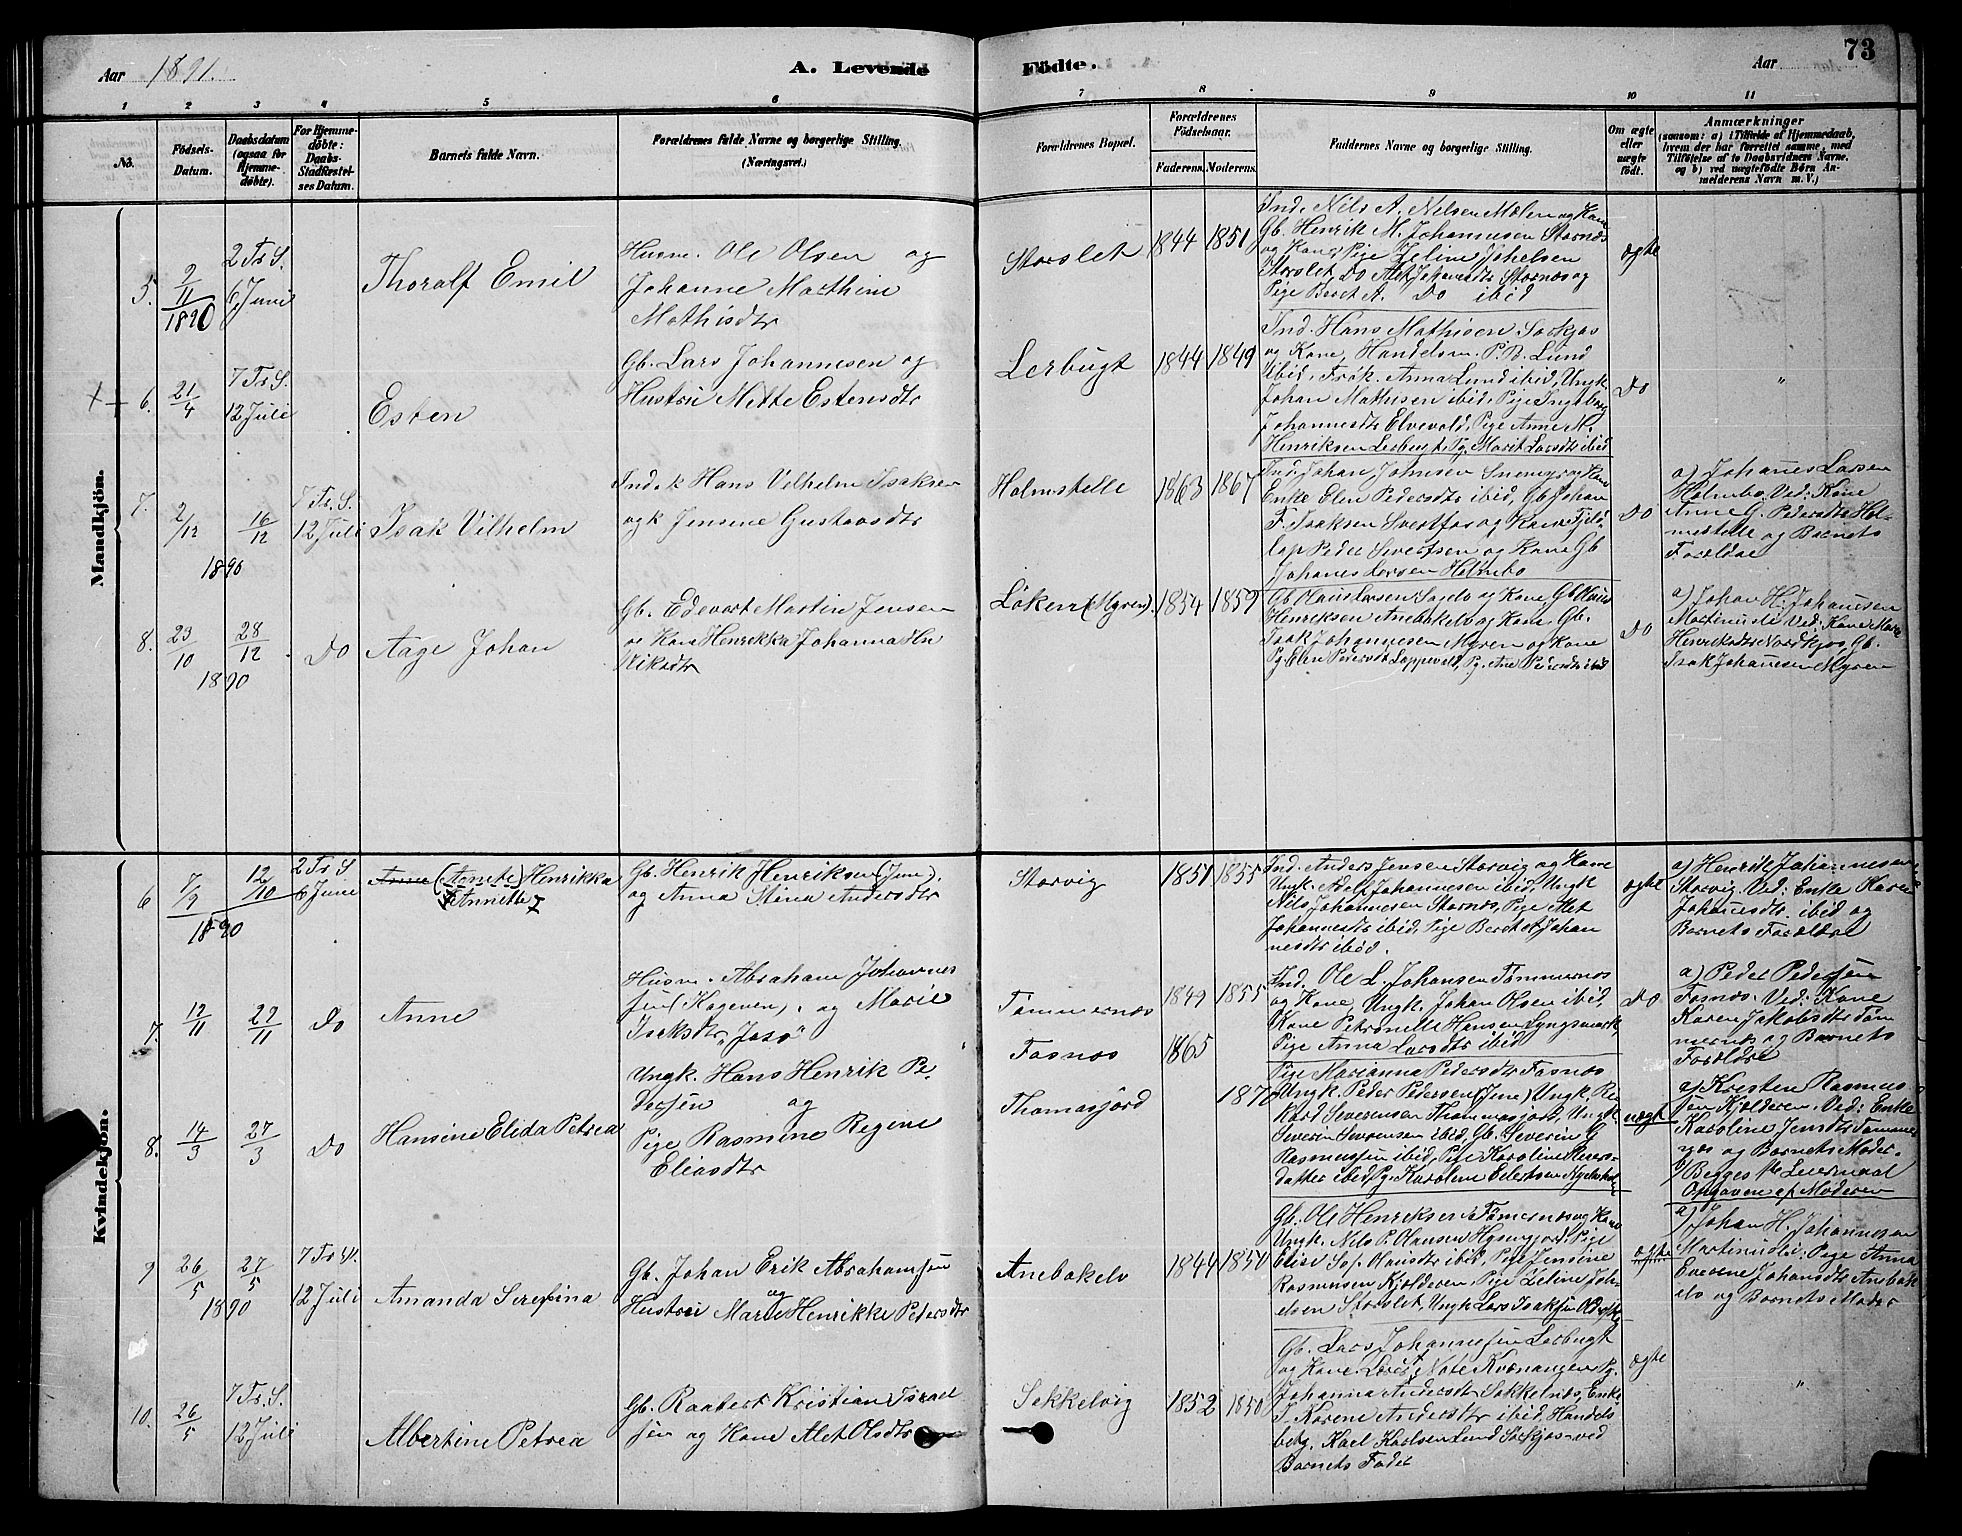 Aar 1891.
A. Levende
Födte.
Aar
73
1 2 3 4 5 6 7 8 9 10 11
No.
Födsels-
Datum.
Daabsdatum
(ogsaa for
Hjemme-
döbte).
For Hjemme-
döbte:
Daabs-
Stadfæstel-
ses Datum.
Barnets fulde Navn.
Forældrenes fulde Navne og borgerlige Stilling.
(Næringsvei.)
Forældrenes Bopæl.
Forældrenes
Födselsaar.
Faderens. Moderens.
Faddernes Navne og borgerlige Stilling.
Om ægte
eller
uægte
födt.
Anmærkninger
(saasom: a) i Tilfælde af Hjemmedaab,
hvem der har forrettet samme, med
Tilföielse af to Daabsvidners Navne.
og b) ved uægtefödte Börn An-
melderens Navn m. V.)
Mandkjön.
5.
9/11
1890
2 Tr. S.
6 Juni
Thoralf Emil
Husm. Ole Olsen og
Johanne Marthine
Mathisdtr
Storslet
1844 1851
Ind. Nils A. Nelsen Mælen og Kone
Gb. Henrik M. Johannesen Stornes
og Kone, Pige Zeline Johelsen
Storslet, Do Alet Johannesdtr Stornes og
Pige Beret A. Do ibid
ægte
6.
21/4
7 Tr. S.
12 Juli
Esten
Gb. Lars Johannesen og
Hustru Mette Estensdtr
Lerbugt
1844 1849
Ind. Hans Mathisen Sørkjos
og Kone, Handelsm. P. B. Lund
ibid, Frøk. Anna Lund ibid, Ungk.
Johan Mathisen ibid, Pige Ingeborg
Johannesdtr Elvevold, Pige Anne M.
Henriksen Lerbugt, Pg. Marit Larsdtr ibid
Do
"
7.
2/12
16/12
1890
7 Tr. S.
12 Juli
Isak Vilhelm
Ind. k Hans Vilhelm Isaksen
og k Jensine Gustavsdtr
Holmstelle
1863 1867
Ind. Johan Johnsen
Enke Elen Pedersdtr ibid, Gb Johan
F. Isaksen og Kone
Peder Sivertsen og Kone Gb
Johanes Larsen Holmbo
Do
a) Johanes Larsen
Holmbo. Ved: Kone
Anne G. Pedersdtr Hol-
mestelle og Barnets
Forældre
8.
23/10
28/12
1890
Do
Aage Johan
Gb. Edevart Martin Jensen
og Kone Henrikka Johanna Hn
riksdtr
Löken (Myren).
1854 1859
Gb Hans Larsen og Kone Gb Hans
Henriksen Anebakelv og Kone, Gb.
Isak Johannesen Myren og Kone
Pg. Elen Pedersdtr Loppevelt, Pg. Ane Pedersdtr ibid
Do
a) Johan H. Johanesen
Martinusli Ved: Kone Maria
Henriksdtr Nordkjos Gb.
Isak Johanesen Myren
Kvindekjön.
6
7/9
12/10
1890
2 Tr. S.
6 Juni
Anne (Annete) Henrikka
(Annette)
Gb. Henrik Henriksen (Jun).
og Anna Stina Andersdtr
Storvig
1851 1855
Ind. Anders Jensen Storvig og Kone
Ungk. Adolf Johannesen ibid, Ungk
Nils Johannesen Stornes, Pige Alet
Johannesdtr ibid, Pige Beret A Johan
nesdtr ibid.
ægte
a) Henrik Johannesen
Storvig. Ved: Enke Karen
Johanesdtr. ibid og
Barnets Forældre
7.
12/11
22/11
Do
Anne
Husm. Abraham Johannes
sen (Kageven), og Marie
Isaksdtr "Josö"
Tömmernes
1849 1855
Ind. Ole L. Johansen Tömmernes
og Kone, Ungk. Johan Olsen ibid,
Kone Petronelle Hansen Lyngsmark,
Pige Anna Larsdtr ibid
Do
a) Peder Pedersen
Fosnæs. Ved: Kone
Karen Jakobsdtr Töm
mernes og Barnets
Forældre
8.
14/3
27/3
Do
Hansine Elida Petrea
Ungk. Hans Henrik Pe-
dersen og
Pige Rasmine Regine
Eliasdtr
Fosnes
Thomasjord
1865
1870
Pige Marianna Pedersdtr Fosnos
Ungk. Peder Pedersen (Jine) Ungk. Ri-
kard Severensen Thommasjord, Ungk
Severin Sevrensen ibid, Gb. Severin G
Rasmussen ibid, Pige Karoline Severs-
datter ibid, Pg. Karoline Eilertsen
uægt
a) Kresten Rasmus
sen Kjelderen. Ved: Enke
Karoline Jensdtr Tömmer
nes og Barnets Moder.
b) Begges 1ste Leiermaal
Opgaven af Moderen
9
26/5
27/5
1890
7 Tr. S.
12 Juli
Amanda Serefina
Gb. Johan Erik Abrahamsen
og
Hustru Marie Henrikke Pedersdtr
Anebakelv
1844 1850
Gb. Ole Henriksen Tömernes og Kone
Ungk. Nils P. Hansen, Pige
Elise Sof. Hansdtr ibid, Pige Jensine
Rasmussen Kjelderen, Pige Zeline Joh-
elsen Storslet, Ungk Lars Isaksen
ægte
a) Johan H. Johannesen
Martinusli. Pige Anna
Johansdtr Anebak
elv og Barnets Moder
10.
26/5
7 Tr. S.
12 Juli
Albertine Petrea
Gb. Raatert Kristian Israel
sen og Kone Alet Olsdtr
Sekkelvig
1852 1850
Gb. Lars Johannesen Lerbugt
og Kone, Kvænangen Pg.
Johanna Andersdtr Sekkelnes, Enke
F. Karene Andersdtr ibid, Handels
betj. Karl Karlsen Lund Sørkjos ved
Barnets Fader
ægte
"